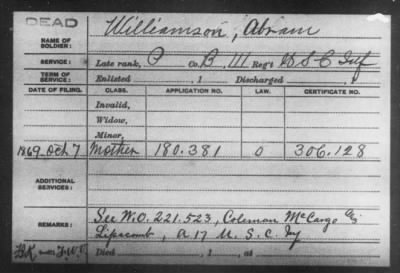 DEAD
NAME OF SOLDIER: Williamson, Abram
SERVICE: Late rank, P Co. B, 111 Reg't U S C Inf
TERM OF SERVICE: Enlisted , 1 Discharged , 1
DATE OF FILING. CLASS. APPLICATION NO. LAW. CERTIFICATE NO.
Invalid,
Widow,
Minor,
1869 Oct 7 Mother 180.381 O 306.128
ADDITIONAL SERVICES:
REMARKS: See W.O. 221.523, Coleman McCargo
Lipscomb, A 17 U.S.C. Iny
Died , 1 , at